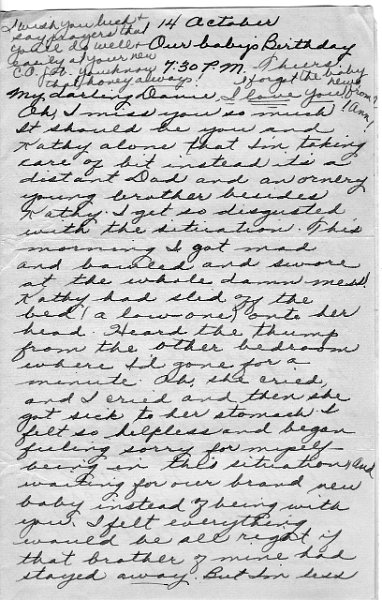 I wish you luck &
say prayers that
you'll do well &
easily at your new
CO. Ft. you know
that honey always!
14 October
Our baby's Birthday
7:30 P.M. Thurs.
I forgot the baby
news from
Ann!
My darling Dannie I love you!
Oh, I miss you so much
It should be you and
Kathy alone that I'm taking
care of but instead its a
distant Dad and an ornery
young brother besides
Kathy. I get so disgusted
with the situation. This
morning I got mad
and bawled and swore
at the whole damn mess!
Kathy had slid off the
bed (a low one) onto her
head. Heard the thump
from the other bedroom
where I'd gone for a
minute. Oh, she cried,
and I cried and then she
got sick to her stomach. I
felt so helpless and began
feeling sorry for myself
being in this situation, and
waiting for our brand new
baby instead of being with
you. I felt everything
would be all right if
that brother of mine had
stayed away. But I'm less